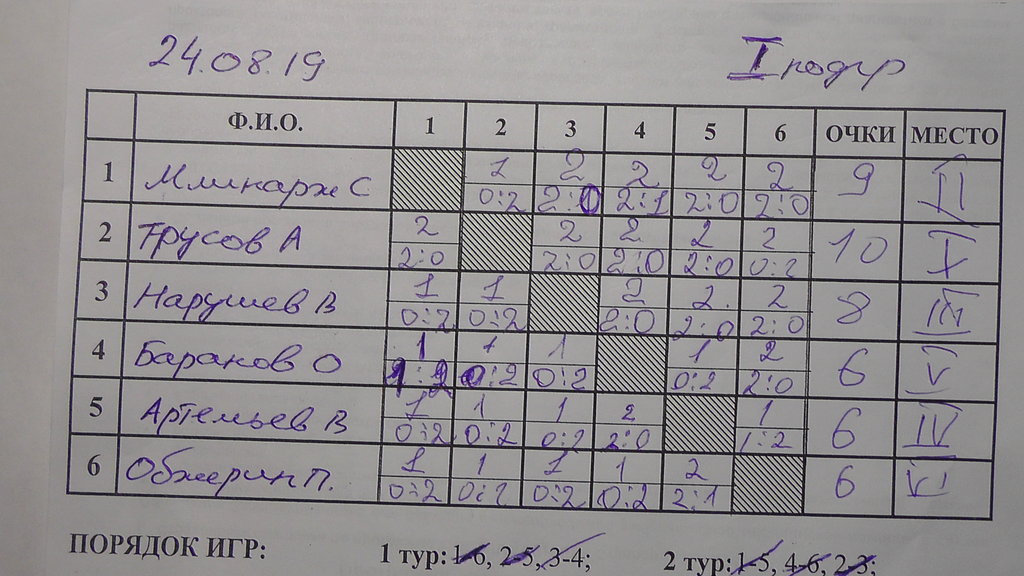 24.08.19
I подгр
Ф.И.О. 1 2 3 4 5 6 ОЧКИ МЕСТО
1 Млинарж С 1 2 2 2 2 9 II
0:2 2:0 2:1 2:0 2:0
2 Трусов А 2 2 2 2 2 10 I
2:0 2:0 2:0 2:0 0:2
3 Нарушев В 1 1 2 2 2 8 III
0:2 0:2 2:0 2:0 2:0
4 Бараков О 1 1 1 1 2 6 V
1:2 0:2 0:2 0:2 2:0
5 Артемьев В 1 1 1 2 1 6 IV
0:2 0:2 0:2 2:0 1:2
6 Обжерин П. 1 1 1 1 2 6 VI
0:2 0:2 0:2 0:2 2:1
ПОРЯДОК ИГР: 1 тур: 1-6, 2-5, 3-4; 2 тур: 1-5, 4-6, 2-3;